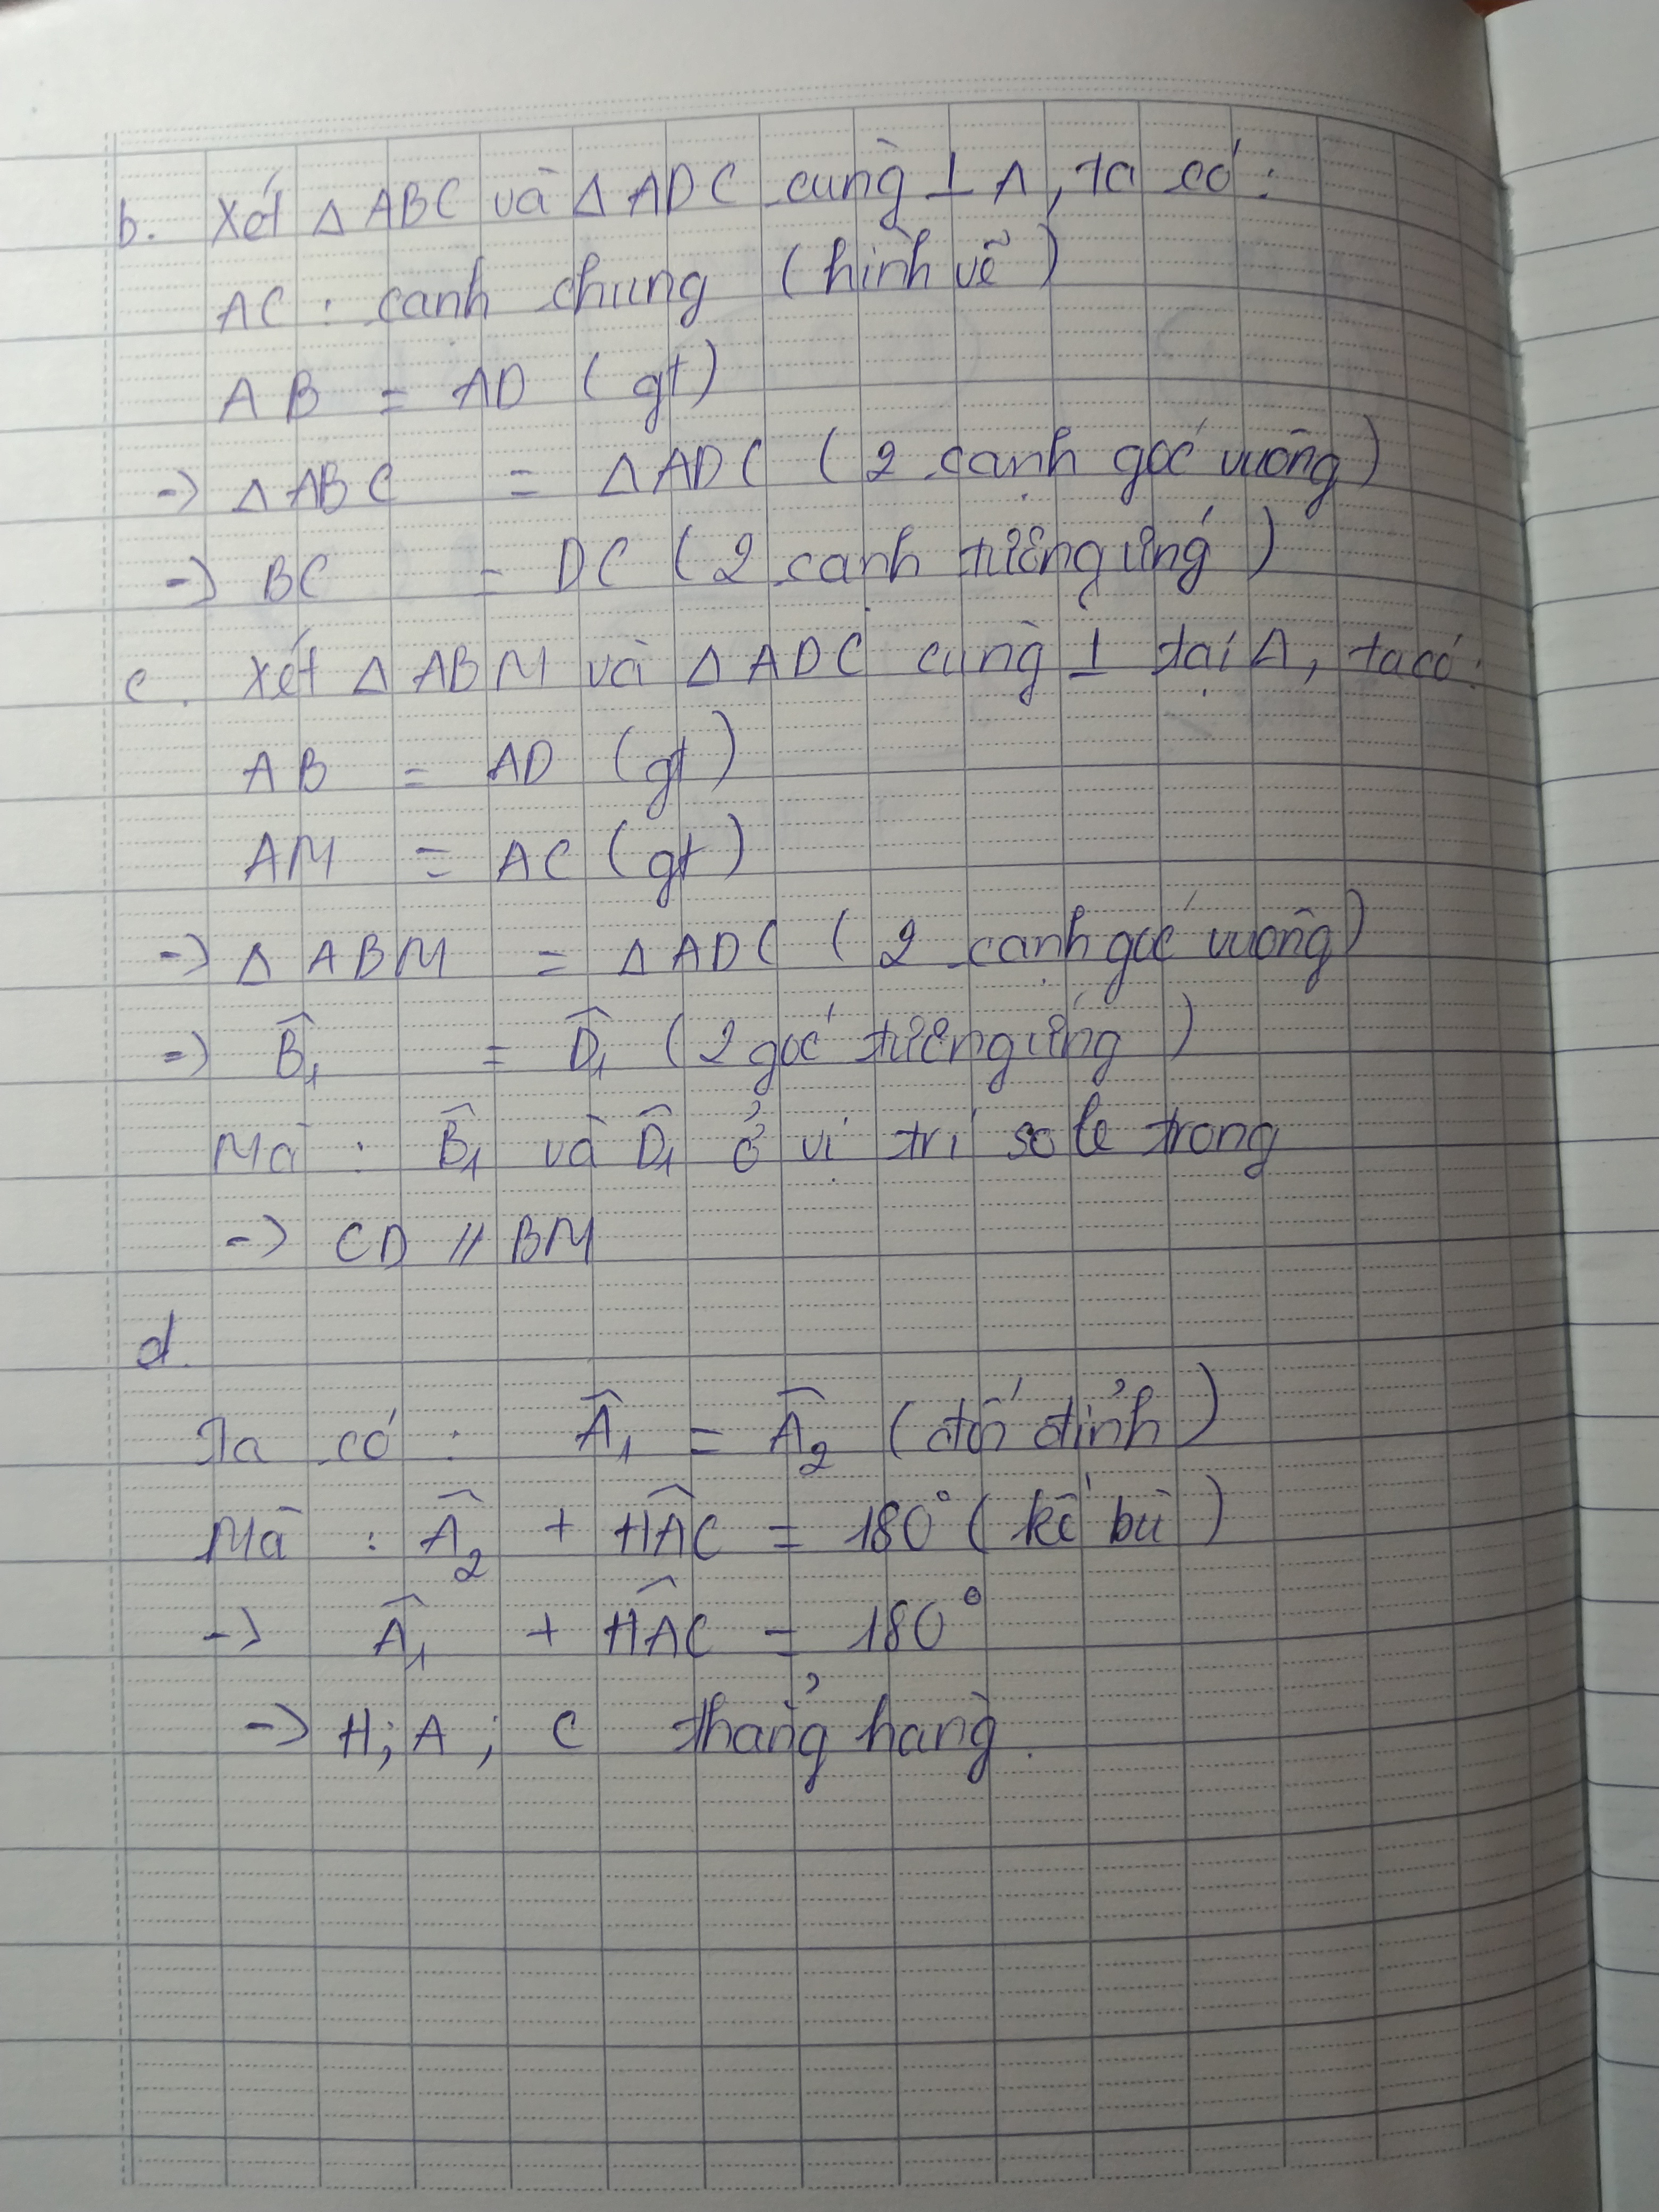 b. Xét Δ ABC và Δ ADC cùng ⊥ A, ta có:
AC : cạnh chung (hình vẽ)
AB = AD (gt)
-> Δ ABC = Δ ADC (2 cạnh góc vuông)
-> BC = DC (2 cạnh tương ứng)
c. Xét Δ ABM và Δ ADC cùng ⊥ tại A, ta có:
AB = AD (gt)
AM = AC (gt)
-> Δ ABM = Δ ADC (2 cạnh góc vuông)
=> B̂₁ = D̂₁ (2 góc tương ứng)
Mà : B̂₁ và D̂₁ ở vị trí so le trong
-> CD // BM
d.
Ta có : Â₁ = Â₂ (đối đỉnh)
Mà : Â₂ + HÂC = 180° (kề bù)
-> Â₁ + HÂC = 180°
-> H; A; C thẳng hàng.